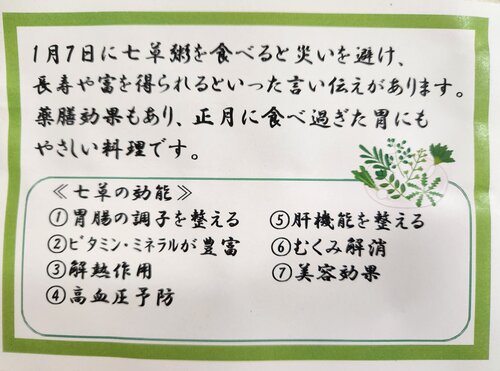 1月7日に七草粥を食べると災いを避け、
長寿や富を得られるといった言い伝えがあります。
薬膳効果もあり、正月に食べ過ぎた胃にも
やさしい料理です。
≪七草の効能≫
①胃腸の調子を整える
②ビタミン・ミネラルが豊富
③解熱作用
④高血圧予防
⑤肝機能を整える
⑥むくみ解消
⑦美容効果